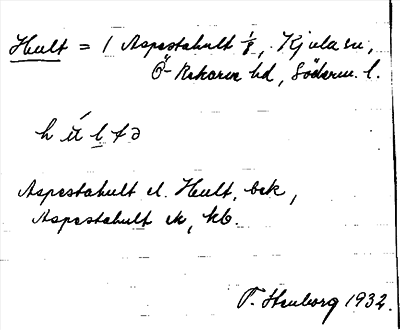 Hult = 1 Aspestahult 1/8, Kjula sn,
Ö-Rekarne hd, Söderm. l.
Aspestahult el. Hult, bek,
Aspestahult ek, kb.
T. Stenborg 1932.